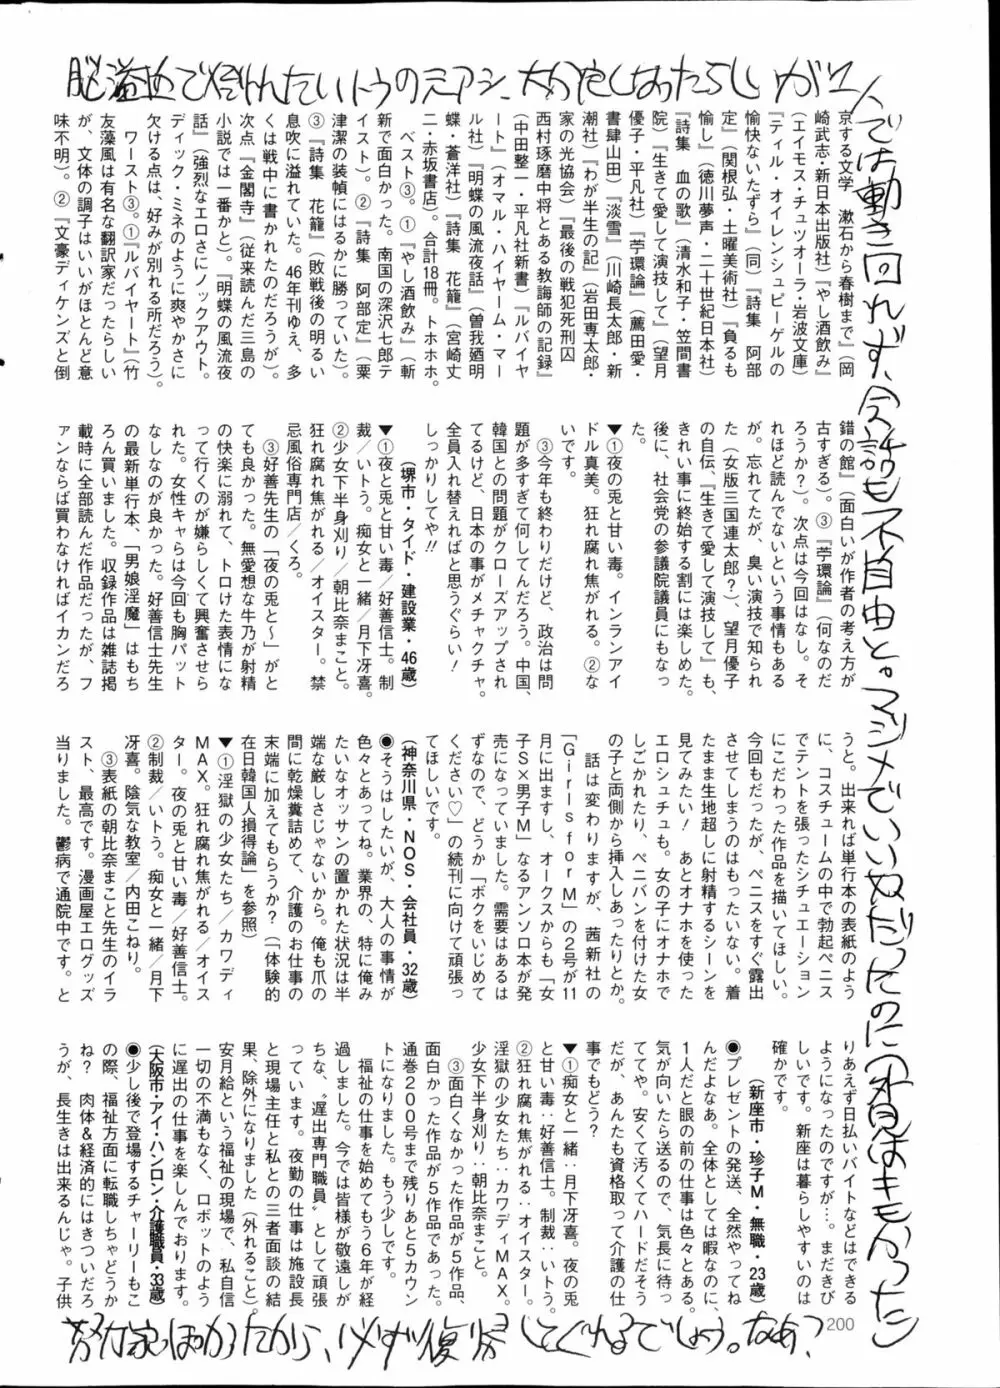 京する文学　漱石から春樹まで』(岡
崎武志・新日本出版社)『やし酒飲み』
(エイモス・チュツオーラ・岩波文庫)
『ティル・オイレンシュピーゲルの
愉快ないたずら』(同)『詩集　阿部
定』(関根弘・土曜美術社)『負るも
愉し』(徳川夢声・二十世紀日本社)
『詩集　血の歌』(清水和子・笠間書
院)『生きて愛して演技して』(望月
優子・平凡社)『苧環論』(薦田愛・
書肆山田)『淡雪』(川崎長太郎・新
潮社)『わが半生の記』(岩田専太郎・
家の光協会)『最後の戦犯死刑囚
西村琢磨中将とある教誨師の記録』
(中田整一・平凡社新書)『ルバイヤ
ート』(オマル・ハイヤーム・マー
ル社)『明蝶の風流夜話』(曽我廼明
蝶・蒼洋社)『詩集　花籠』(宮崎丈
二・赤坂書店)。合計18冊。トホホホ。
ベスト③。①『やし酒飲み』(斬
新で面白かった。南国の深沢七郎テ
イスト)。②『詩集　阿部定』(粟
津潔の装幀にはるかに勝っていた)。
③『詩集　花籠』(敗戦後の明るい
息吹に溢れていた。46年刊ゆえ、多
くは戦中に書かれたのだろうが)。
次点『金閣寺』(従来読んだ三島の
小説では一番かと)。『明蝶の風流夜
話』(強烈なエロさにノックアウト。
ディック・ミネのように爽やかさに
欠ける点は、好みが別れる所だろう)。
ワースト③。①『ルバイヤート』(竹
友藻風は有名な翻訳家だったらしい
が、文体の調子はいいがほとんど意
味不明)。②『文豪ディケンズと倒
錯の館』(面白いが作者の考え方が
古すぎる)。③『苧環論』(何なのだ
ろうか?)。次点は今回はなし。そ
れほど読んでないという事情もある
が。忘れてたが、臭い演技で知られ
た(女版三国連太郎?)、望月優子
の自伝、『生きて愛して演技して』も、
きれい事に終始する割には楽しめた。
後に、社会党の参議院議員にもなっ
た。
▼①夜の兎と甘い毒。インランアイ
ドル真美。狂れ腐れ焦がれる。②な
いです。
③今年も終わりだけど、政治は問
題が多すぎて何してんだろう。中国、
韓国との問題がクローズアップされ
てるけど、日本の事がメチャクチャ。
全員入れ替えればと思うぐらい!
しっかりしてや!!
(堺市・タイド・建設業・46歳)
▼①夜と兎と甘い毒/好善信士。制
裁/いトう。痴女と一緒/月下冴喜。
②少女下半身刈り/朝比奈まこと。
狂れ腐れ焦がれる/オイスター。禁
忌風俗専門店/くろ。
③好善先生の「夜の兎と~」がと
ても良かった。無愛想な牛乃が射精
の快楽に溺れて、トロけた表情にな
って行くのが嫌らしくて興奮させら
れた。女性キャらは今回も胸パット
なしなのが良かった。好善信士先生
の最新単行本、「男娘淫魔」はもち
ろん買いました。収録作品は雑誌掲
載時に全部読んだ作品だったが、フ
ァンならば買わなければイカンだろ
うと。出来れば単行本の表紙のよう
に、コスチュームの中で勃起ペニス
でテントを張ったシチュエーション
にこだわった作品を描いてほしい。
今回もだったが、ペニスをすぐ露出
させてしまうのはもったいない。着
たまま生地超しに射精するシーンを
見てみたい!　あとオナホを使った
エロシュチュも。女の子にオナホで
しごかれたり、ペニバンを付けた女
の子と両側から挿入しあったりとか。
話は変わりますが、茜新社の
「GirlsforM」の2号が11
月に出ますし、オークスからも「女
子S×男子M」なるアンソロ本が発
売になっていました。需要はあるは
ずなので、どうか「ボクをいじめて
ください♡」の続刊に向けて頑張っ
てほしいです。
(神奈川県・NOS・会社員・32歳)
◉そうはしたいが、大人の事情が
色々とあってね。業界の、特に俺み
たいなオッサンの置かれた状況は半
端な厳しさじゃないから。俺も爪の
間に乾燥糞詰めて、介護のお仕事の
末端に加えてもらうか?(「体験的
在日韓国人損得論」を参照)
▼①淫獄の少女たち/カワディ
MAX。狂れ腐れ焦がれる/オイス
ター。夜の兎と甘い毒/好善信士。
②制裁/いトう。痴女と一緒/月下
冴喜。陰気な教室/内田こねり。
③表紙の朝比奈まこと先生のイラ
スト、最高です。漫画屋エログッズ
当りました。鬱病で通院中です。と
りあえず日払いバイトなどはできる
ようになったのですが…。まだきび
しいです。新座は暮らしやすいのは
確かです。
(新座市・珍子M・無職・23歳)
◉プレゼントの発送、全然やってね
んだよなあ。全体としては暇なのに、
1人だと眼の前の仕事は色々とある。
気が向いたら送るので、気長に待っ
ててや。安くて汚くてハードだそう
だが、あんたも資格取って介護の仕
事でもどう?
▼①痴女と一緒：月下冴喜。夜の兎
と甘い毒：好善信士。制裁：いトう。
②狂れ腐れ焦がれる：オイスター。
淫獄の少女たち：カワディMAX。
少女下半身刈り：朝比奈まこと。
③面白くなかった作品が5作品、
面白かった作品が5作品であった。
通巻200号まで残りあと5カウン
トになりました。もう少しです。
福祉の仕事を始めてもう6年が経
過しました。今では皆様が敬遠しが
ちな、“遅出専門職員”として頑張
っています。夜勤の仕事は施設長
と現場主任と私との三者面談の結
果、除外になりました(外れること)。
安月給という福祉の現場で、私自信
一切の不満もなく、ロボットのよう
に遅出の仕事を楽しんでおります。
(大阪市・アイ・ハンロン・介護職員・33歳)
◉少し後で登場するチャーリーもこ
の際、福祉方面に転職しちゃどうか
ね?　肉体&経済的にはきついだろ
うが、長生きは出来るんじゃ。子供
人では動き回れず、今話も不自由と。マジメでいい奴だったのに
必ず復帰してくれるでしょう。なあ?
200